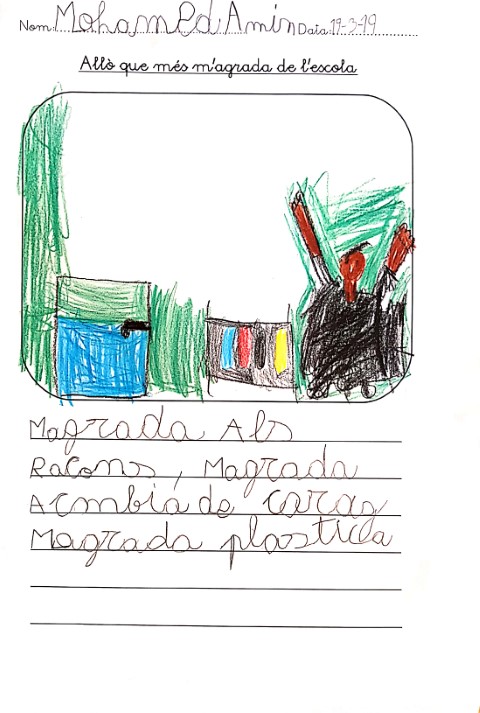 Nom: Mohamed Amin Data: 19-3-19
Allò que més m'agrada de l'escola
Magrada Als
Racons, Magrada
Acmbia de caraz
Magrada plastica